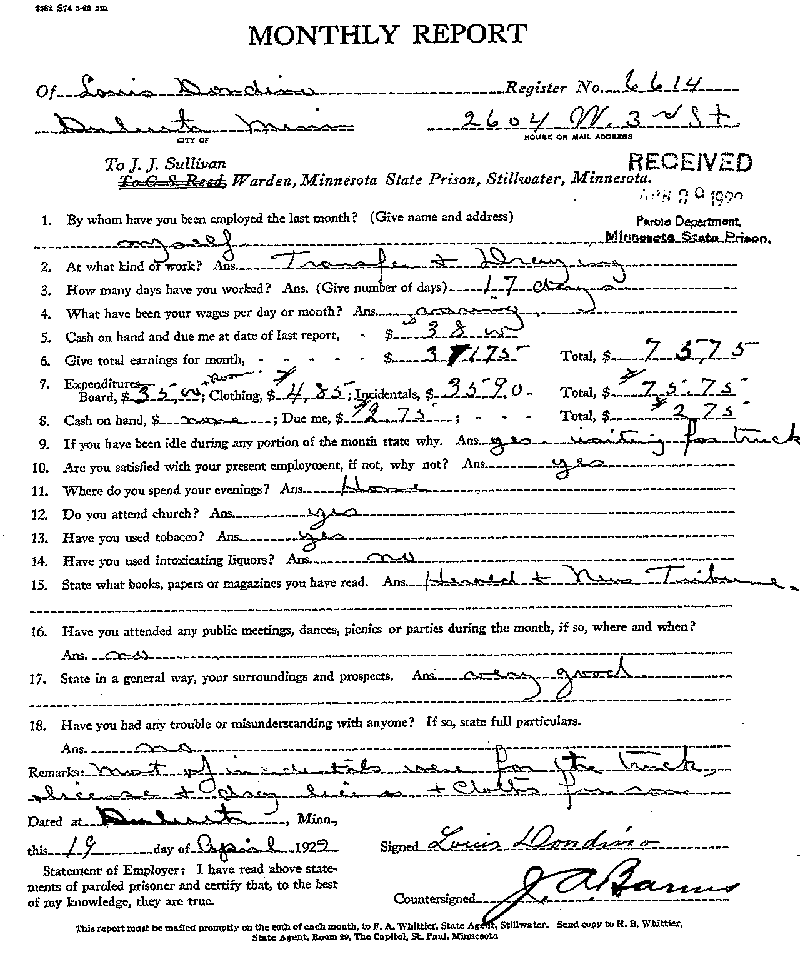 MONTHLY REPORT
Of Louis Dondino Register No. 6614
Duluth Minn 2604 W. 3rd St
CITY OF HOUSE OR MAIL ADDRESS
To J. J. Sullivan RECEIVED
To C. S. Reed, Warden, Minnesota State Prison, Stillwater, Minnesota.
1. By whom have you been employed the last month? (Give name and address) Parole Department,
myself Minnesota State Prison.
2. At what kind of work? Ans. Transfer + Draying
3. How many days have you worked? Ans. (Give number of days) 17 days
4. What have been your wages per day or month? Ans.
5. Cash on hand and due me at date of last report, - $ 38 00
6. Give total earnings for month, - - - - - $ 37.75 Total, $ 75 75
7. Expenditures
Board, $ 35.00; Clothing, $ 4.85; Incidentals, $ 35 90 Total, $ 75.75
8. Cash on hand, $ none; Due me, $ 2.75; - - - Total, $ 2 75
9. If you have been idle during any portion of the month state why. Ans. yes - waiting for truck
10. Are you satisfied with your present employment, if not, why not? Ans. yes
11. Where do you spend your evenings? Ans. Home
12. Do you attend church? Ans. yes
13. Have you used tobacco? Ans. yes
14. Have you used intoxicating liquors? Ans. no
15. State what books, papers or magazines you have read. Ans. Herald + News Tribune.
16. Have you attended any public meetings, dances, picnics or parties during the month, if so, where and when?
Ans. no
17. State in a general way, your surroundings and prospects. Ans. very good
18. Have you had any trouble or misunderstanding with anyone? If so, state full particulars.
Ans. no
Remarks: Most of incidentals were for the truck,
license + dray license + Cloths for son
Dated at Duluth, Minn.,
this 19 day of April 1922 Signed Louis Dondino
Statement of Employer: I have read above state-
ments of paroled prisoner and certify that, to the best
of my knowledge, they are true. Countersigned J. A. Barnes
This report must be mailed promptly on the 20th of each month, to F. A. Whittier, State Agent, Stillwater. Send copy to H. B. Whittier,
State Agent, Room 29, The Capitol, St. Paul, Minnesota